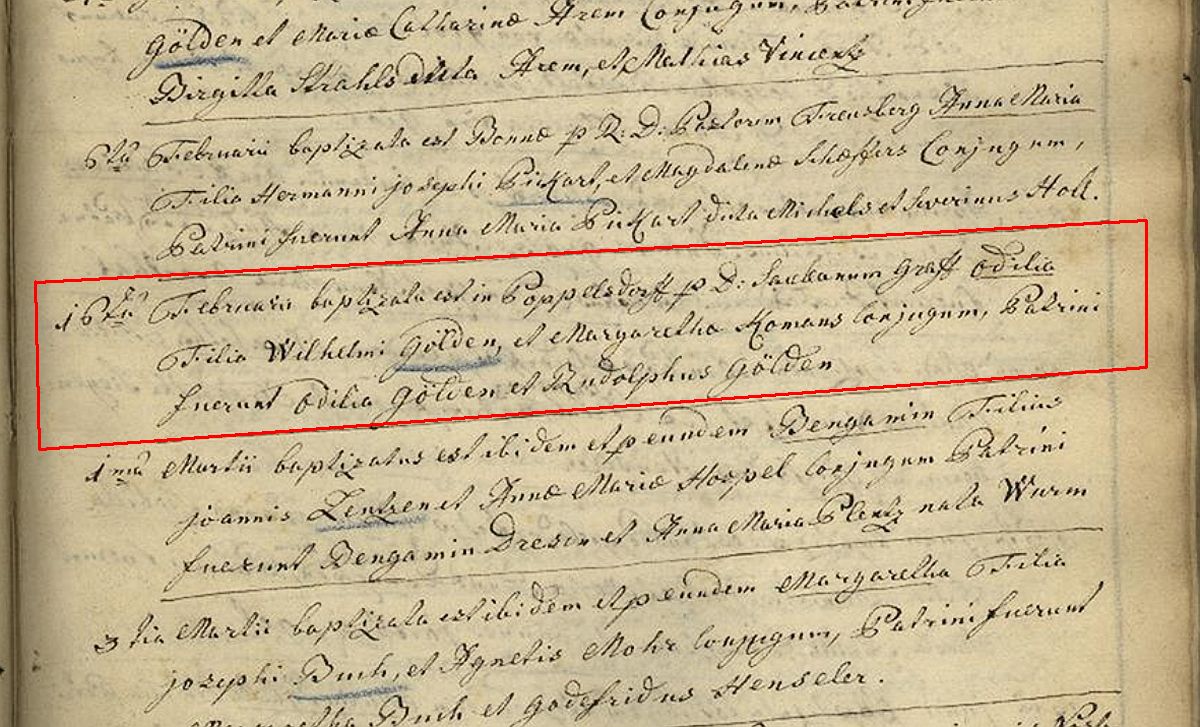 Gölden et Mariæ Catharinæ Arem Conjugum, Patrini fuerunt
Birgitta Strahls dicta Arem, et Mathias Vincentz
6ta Februarii baptizata est Bonnæ p R: D: Pastorem Frensberg Anna Maria
Filia Hermanni josephi Pickart, et Magdalenæ Schæffers Conjugum,
Patrini fuerunt Anna Maria Pickart dicta Michels et Severinus Holl.
16ta Februarii baptizata est in Poppelsdorff p D: Graff Odilia
Filia Wilhelmi Gölden, et Margaretha Komans Conjugum, Patrini
fuerunt Odilia Gölden et Rudolphus Gölden
1ma Martii baptizatus est ibidem et p eundem Bengamin Filius
joannis Lentzen et Annæ Mariæ Hoepel Conjugum Patrini
fuerunt Bengamin Dresen et Anna Maria Plentz nata Wurm
3tia Martii baptizata est ibidem et p eundem Margaretha Filia
josephi Buch, et Agnetis Mohr Conjugum, Patrini fuerunt
Margaretha Buch et Godefridus Henseler.